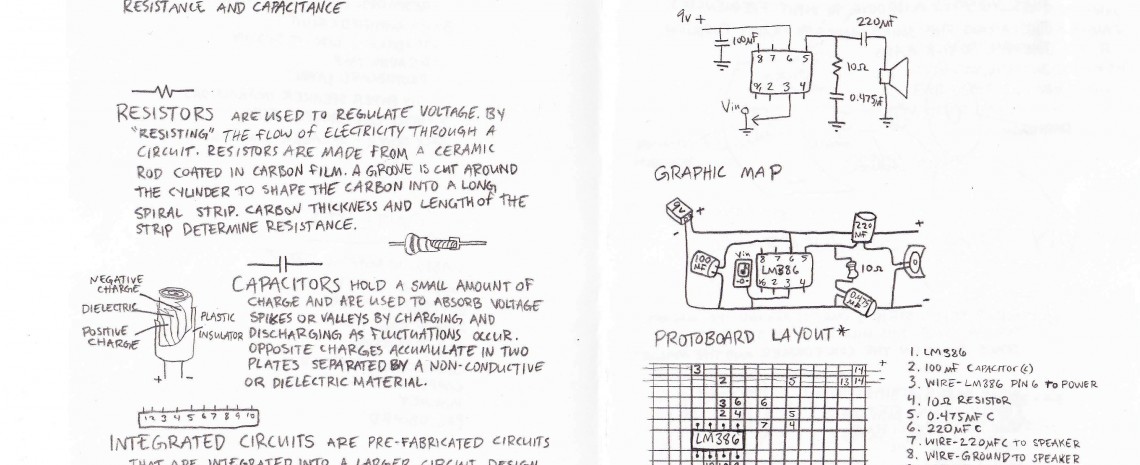 RESISTANCE AND CAPACITANCE
RESISTORS ARE USED TO REGULATE VOLTAGE. BY
"RESISTING" THE FLOW OF ELECTRICITY THROUGH A
CIRCUIT. RESISTORS ARE MADE FROM A CERAMIC
ROD COATED IN CARBON FILM. A GROOVE IS CUT AROUND
THE CYLINDER TO SHAPE THE CARBON INTO A LONG
SPIRAL STRIP. CARBON THICKNESS AND LENGTH of THE
STRIP DETERMINE RESISTANCE.
NEGATIVE
CHARGE
DIELECTRIC
POSITIVE
CHARGE
PLASTIC
INSULATOR
+ -
CAPACITORS HOLD A SMALL AMOUNT OF
CHARGE AND ARE USED TO ABSORB VOLTAGE
SPIKES OR VALLEYS BY CHARGING AND
DISCHARGING AS FLUCTUATIONS OCCUR.
OPPOSITE CHARGES ACCUMULATE IN TWO
PLATES SEPARATED BY A NON-CONDUCTIVE
OR DIELECTRIC MATERIAL.
1 2 3 4 5 6 7 8 9 10
INTEGRATED CIRCUITS ARE PRE-FABRICATED CIRCUITS
THAT ARE INTEGRATED INTO A LARGER CIRCUIT DESIGN
9v +
100µF
220µF
8 7 6 5
2 3 4
10Ω
0.475µF
Vin
GRAPHIC MAP
9V
+
-
100
µF
Vin
8 7 6 5
LM386
2 3 4
220
µF
10Ω
0.475
+
-
PROTOBOARD LAYOUT*
3 14
2 5 13 14
3 6 6
2 4 5
7 4
LM386
+
-
1. LM386
2. 100µF CAPACITOR(C)
3. WIRE-LM386 PIN 6 to POWER
4. 10Ω RESISTOR
5. 0.475µF C
6. 220µF C
7. WIRE-220µFC TO SPEAKER
8. WIRE-GROUND TO SPEAKER